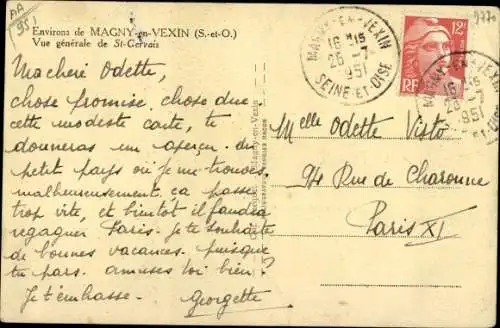 AA
951
9770
Environs de MAGNY-en-VEXIN (S.-et-O.)
Vue générale de St-Gervais
MAGNY-EN-VEXIN
16 H 15
26 -7
1951
SEINE-ET-OISE
12F
RF
MAGNY-EN-VEXIN
16 H 15
26 -7
1951
Ma cheri Odette,
chose promise, chose due
cette modeste carte, te
donneras un aperçu du
petit pays où je me trouves,
malheureusement ça passe
trop vite, et bientôt il faudra
regagner Paris. je te souhaite
de bonnes vacances. puisque
tu pars. amuses toi bien?
Je t'embrasse. Georgette
Melle Odette Visto
94 Rue de Charonne
Paris XI